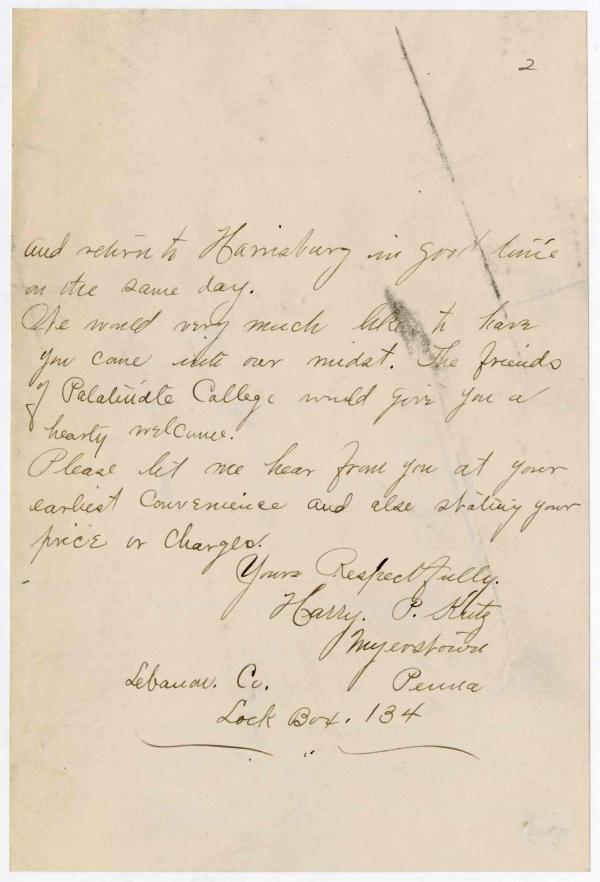 2
and return to Harrisburg in good time
on the same day.
We would very much like to have
you come into our midst. The friends
of Palatinate College would give you a
hearty welcome.
Please let me hear from you at your
earliest convenience and also stating your
price or charges.
Yours Respectfully.
Harry. P. Kutz
Myerstown
Lebanon. Co. Penna
Lock Box. 134